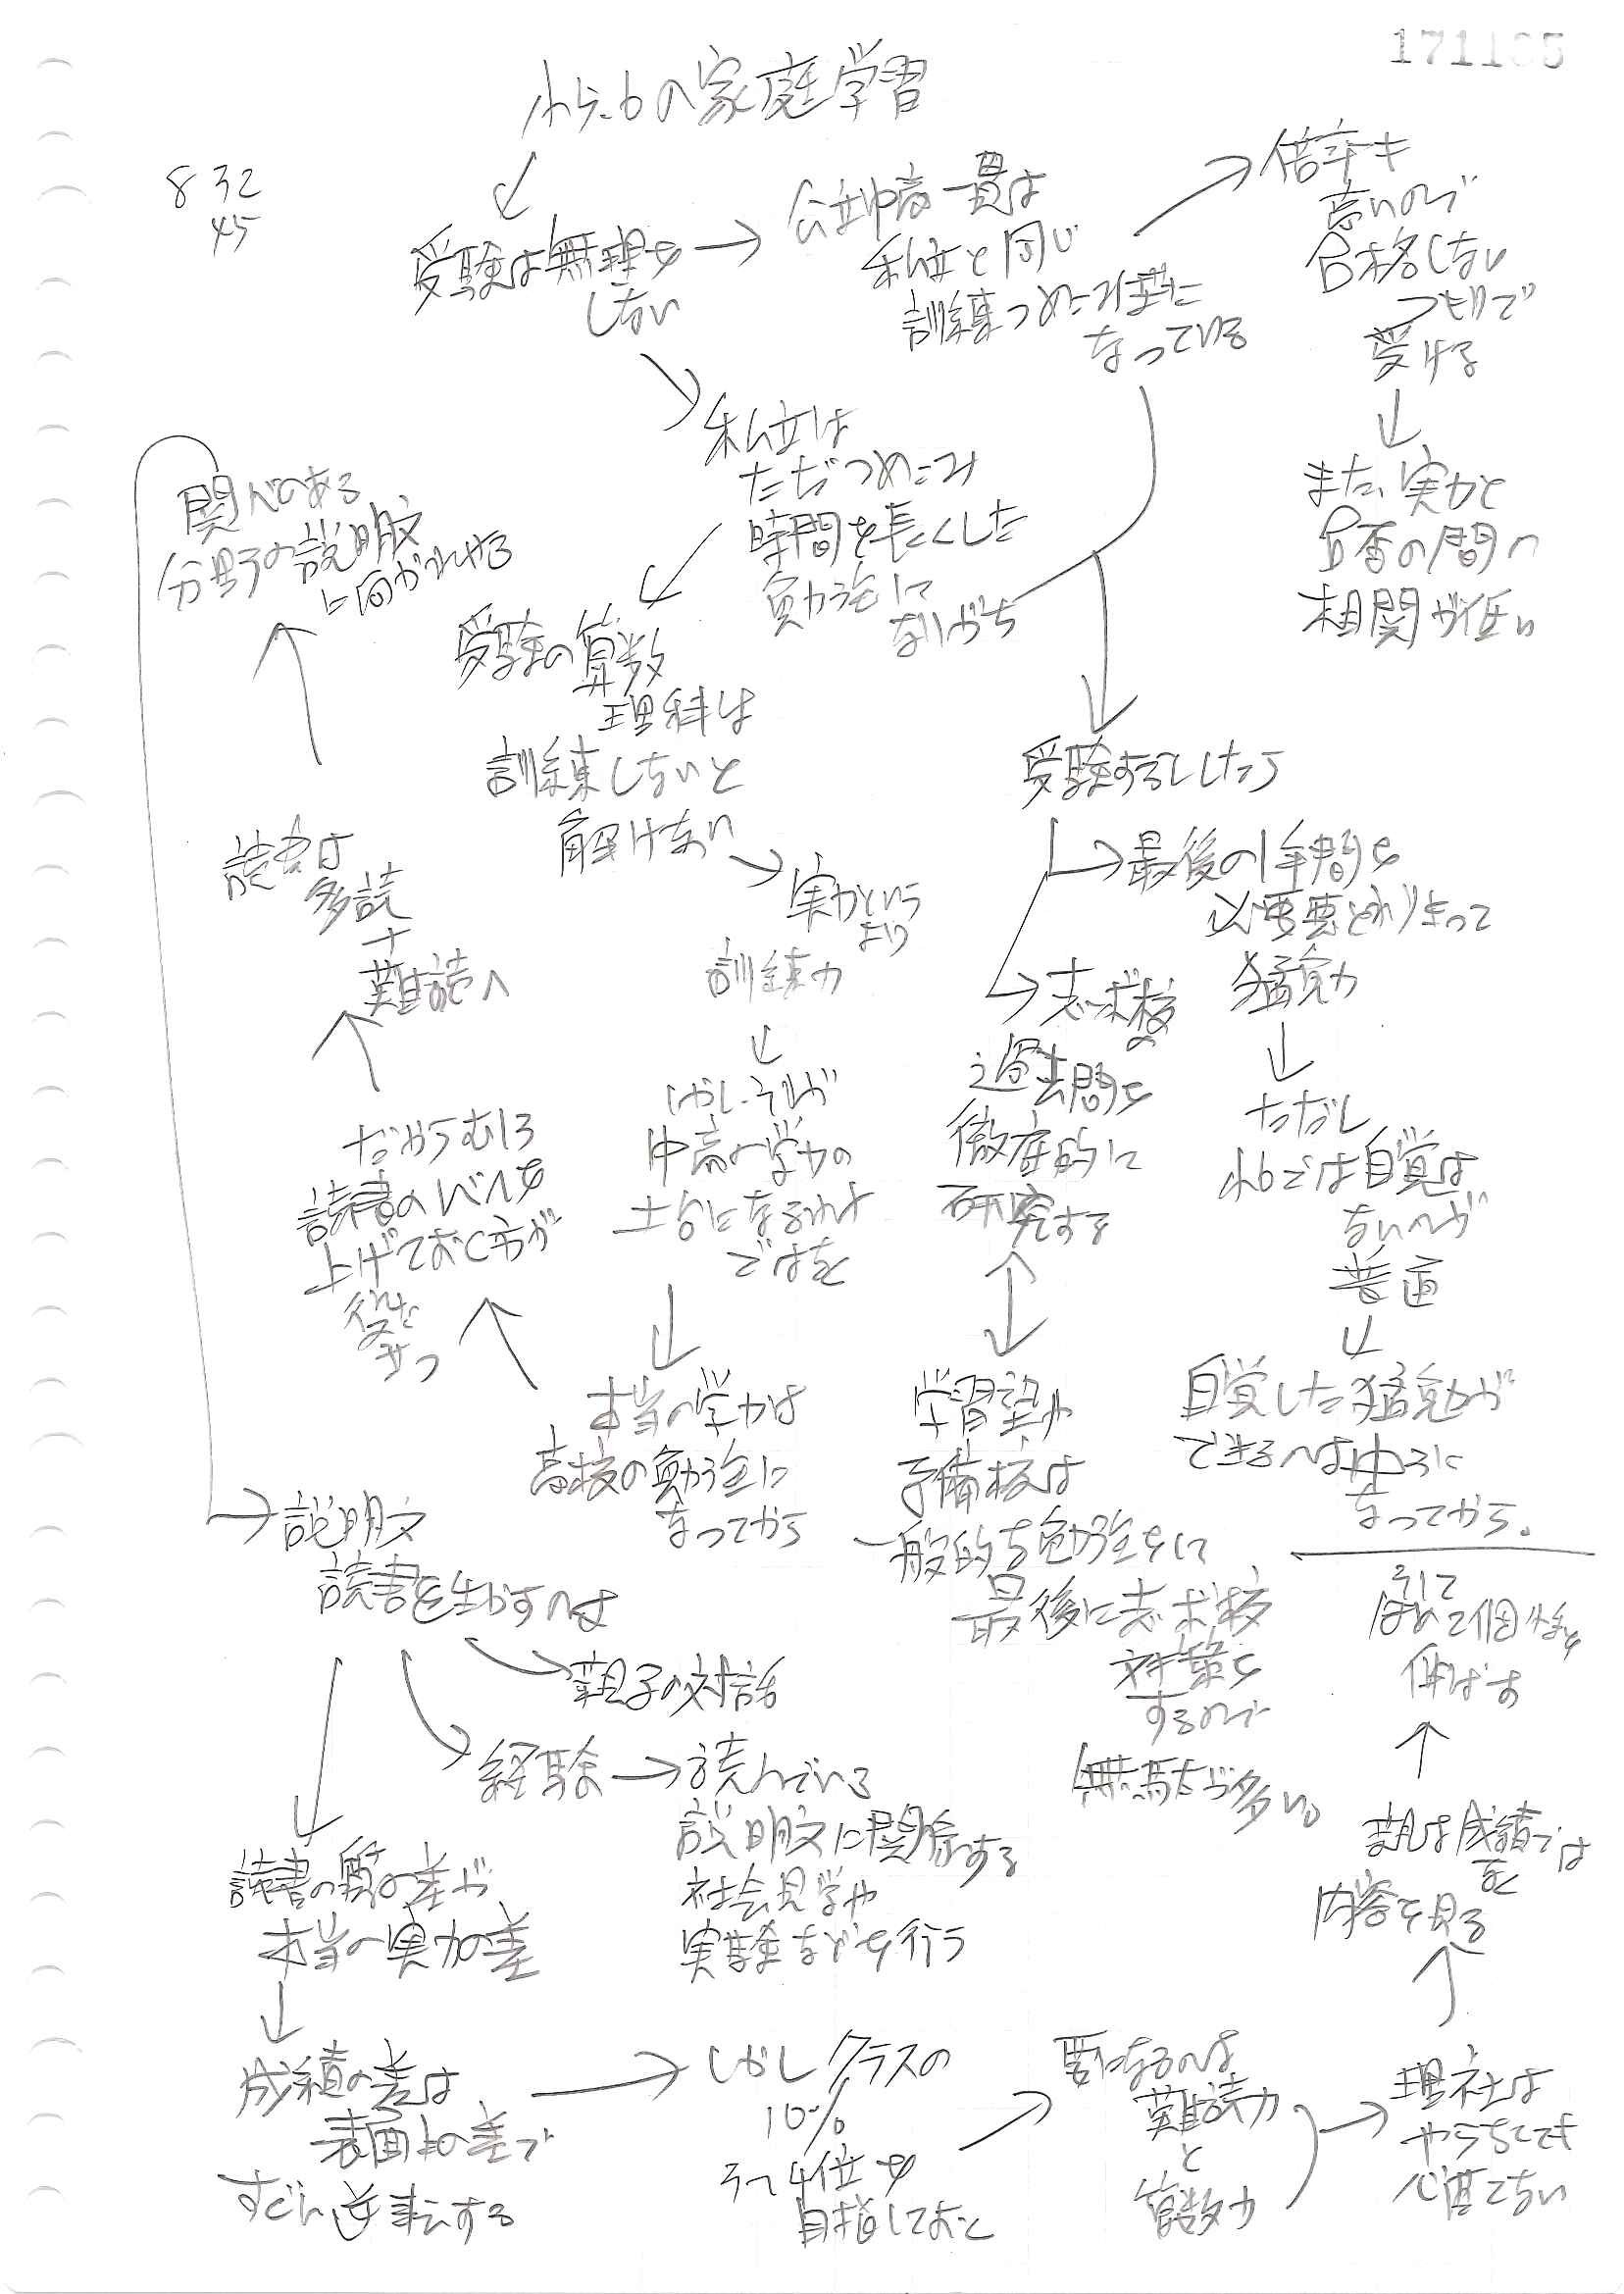 小5.6の家庭学習
8 32
45
受験は無理を
しない
公立中高一貫は
私立と同じ
訓練つめこみ型に
なっている
倍率も
高いので
合格しない
つもりで
受ける
また、実力と
合否の間の
相関が低い
私立は
ただつめこみ
時間を長くした
勉強に
なりがち
受験の算数
理科は
訓練しないと
解けない
実力という
より
訓練力
しかし、それが
中高の学力の
土台になるわけ
ではなく
本当の学力は
高校の勉強に
なってから
だからむしろ
読書のレベルを
上げておく方が
役に
立つ
読書は
多読
+
難読へ
関心のある
分野の説明文
に向かわせる
説明文
読書を生かすのは
親子の対話
経験
読んでいる
説明文に関係する
社会見学や
実験などを行う
読書の質の差が
本当の実力の差
成績の差は
表面上の差で
すぐに逆転する
しかしクラスの
10%
3〜4位を
目指しておく
要になるのは
難読力
と
算数力
理社は
やらなくても
心配ない
親は成績では
なく
内容を見る
そして
はじめて個性を
伸ばす
受験するとしたら
最後の1年間を
必要悪とわりきって
猛勉
ただし
小6では自覚は
ないのが
普通
自覚した猛勉が
できるのは中3に
なってから。
志望校
の
過去問を
徹底的に
研究する
学習塾や
予備校は
一般的な勉強をして
最後に志望校
対策を
するので
無駄が多い。